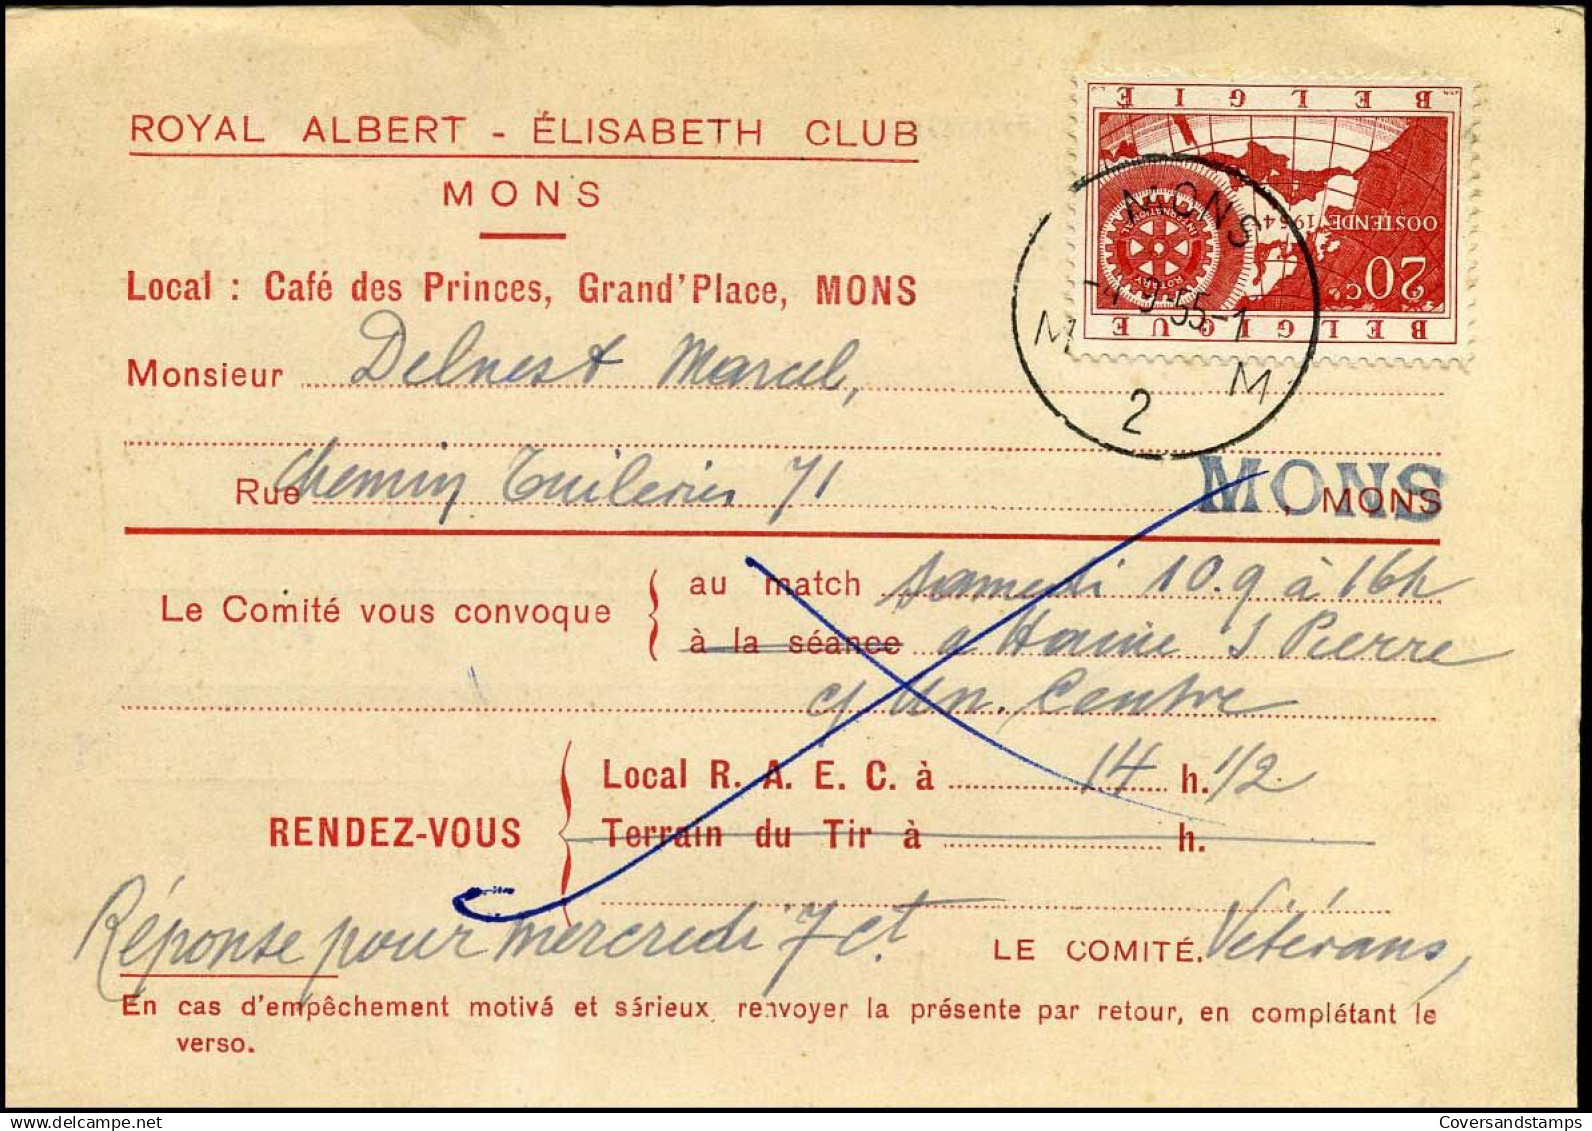 ROYAL ALBERT - ÉLISABETH CLUB
MONS
Local : Café des Princes, Grand'Place, MONS
Monsieur Delnest Marcel,
Rue Chemin Tuileries 71 , MONS
MONS
BELGIQUE
20 c
OOSTENDE 1954
ROTARY INTERNATIONAL
BELGIE
MONS
9-55-1
M 2 M
Le Comité vous convoque
au match samedi 10.9 à 16h
à la séance a Haine S Pierre
c/ An. Centre
RENDEZ-VOUS
Local R. A. E. C. à 14 h. 1/2
Terrain du Tir à h.
Réponse pour mercredi 7 ct.
LE COMITÉ. Vétérans,
En cas d'empêchement motivé et sérieux renvoyer la présente par retour, en complétant le
verso.
Coversandstamps